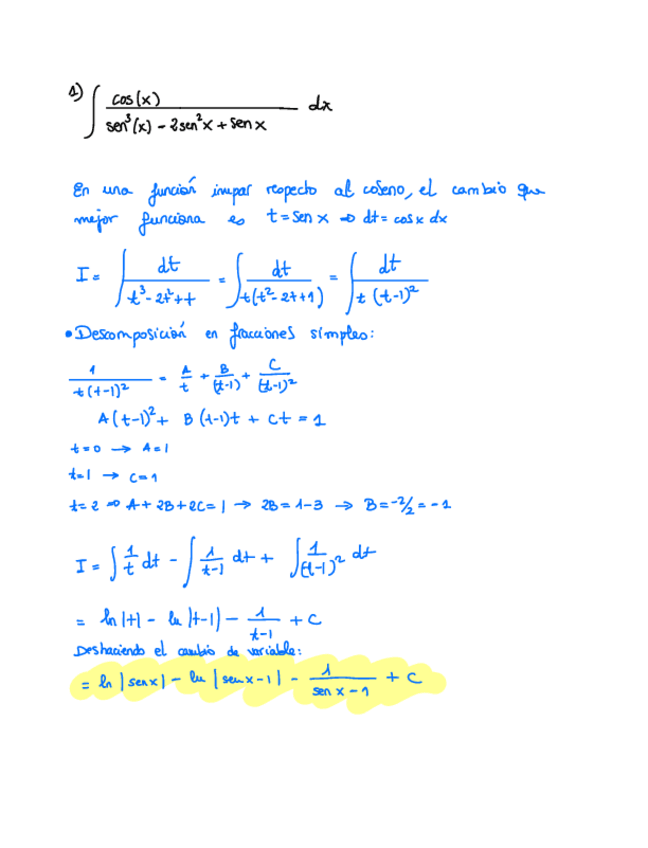 1) ∫ cos(x) / (sen³(x) - 2sen²x + sen x) dx
En una función impar respecto al coseno, el cambio que
mejor funciona es t = sen x ⇒ dt = cos x dx
I = ∫ dt / (t³ - 2t² + t) = ∫ dt / (t(t² - 2t + 1)) = ∫ dt / (t (t-1)²)
• Descomposición en fracciones simples:
1 / (t(t-1)²) = A/t + B/(t-1) + C/(t-1)²
A(t-1)² + B(t-1)t + Ct = 1
t=0 → A=1
t=1 → C=1
t=2 ⇒ A + 2B + 2C = 1 → 2B = 1-3 → B = -2/2 = -1
I = ∫ 1/t dt - ∫ 1/(t-1) dt + ∫ 1/(t-1)² dt
= ln|t| - ln|t-1| - 1/(t-1) + C
Deshaciendo el cambio de variable:
= ln|sen x| - ln|sen x - 1| - 1/(sen x - 1) + C